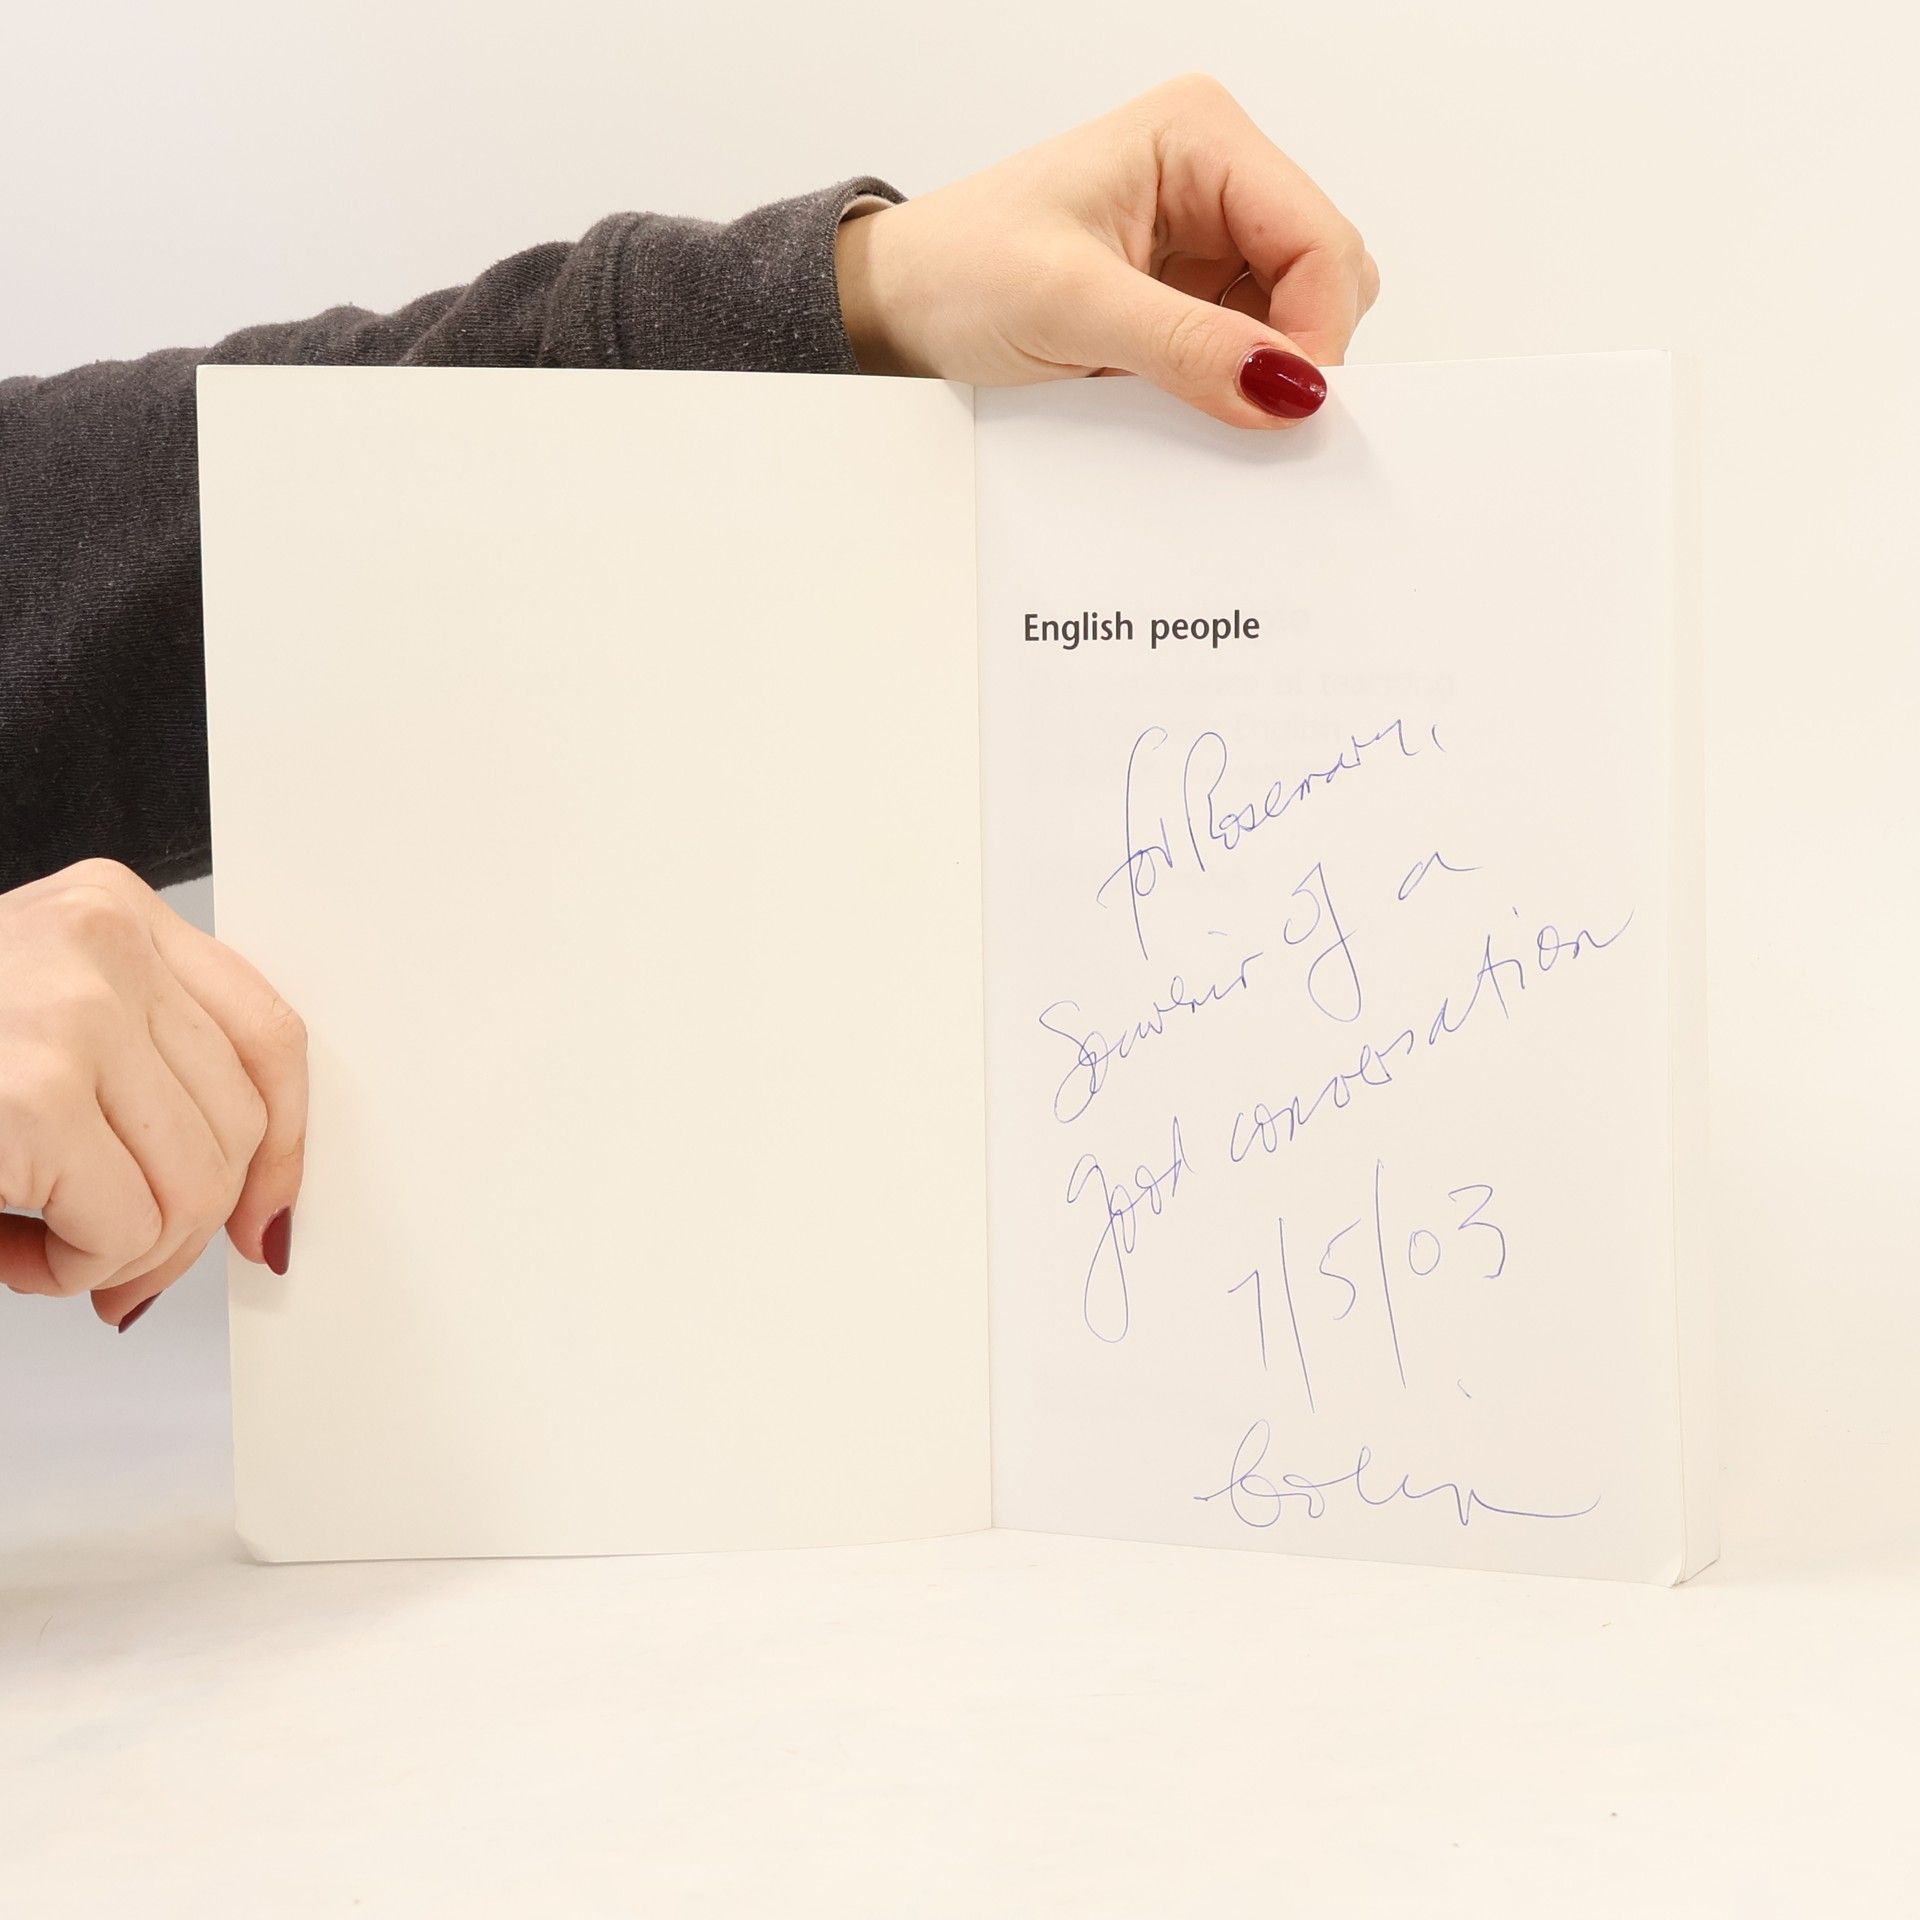 English people
for Rosemary,
Souvenir of a
good conversation
7/5/03
Colin